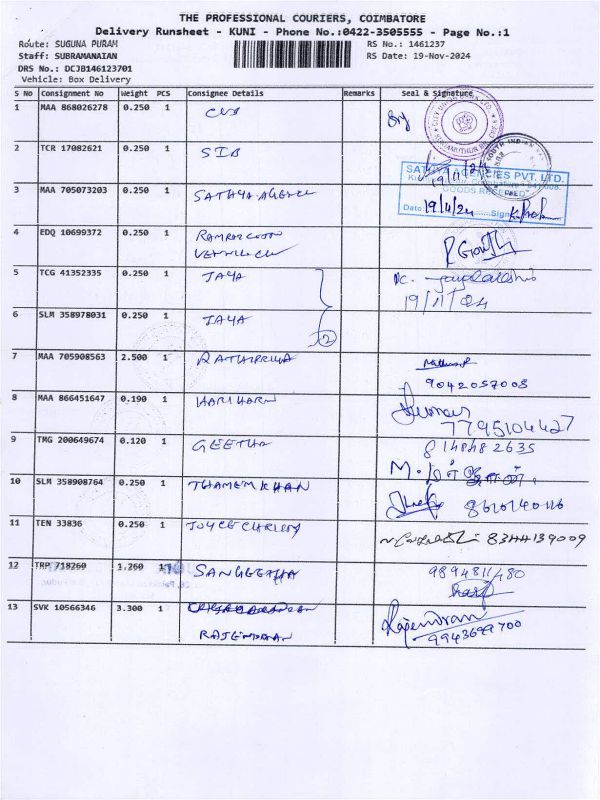 THE PROFESSIONAL COURIERS, COIMBATORE
Delivery Runsheet - KUNI - Phone No.:0422-3505555 - Page No.:1
Route: SUGUNA PURAM
RS No.: 1461237
Staff: SUBRAMANAIAN
RS Date: 19-Nov-2024
DRS No.: DCJB146123701
Vehicle: Box Delivery
S No Consignment No Weight PCS Consignee Details Remarks Seal & Signature
1 MAA 868026278 0.250 1 CUB
2 TCR 17082621 0.250 1 SIB
19/11/24
SATHYA AGENCIES PVT. LTD.
GOODS RECEIVED
3 MAA 705073203 0.250 1 SATHYA AGENCE
Date: 19/11/24 Sign
4 EDQ 10699372 0.250 1
5 TCG 41352335 0.250 1 JAYA
19/11/24
6 SLM 358978031 0.250 1 JAYA
2
7 MAA 705908563 2.500 1 RATHIPRIYA
9042057008
8 MAA 866451647 0.190 1 HARIHARN
7795104427
9 TMG 200649674 0.120 1 GEETHA
8148482635
10 SLM 358908764 0.250 1 THAMEM KHAN
8610140116
11 TEN 33836 0.250 1 JOYCE CHRISTY
8344139009
12 TRP 718260 1.260 1 SANGEETHA
9894811480
13 SVK 10566346 3.300 1
RAJENDRAN
Rajendran
9943699700